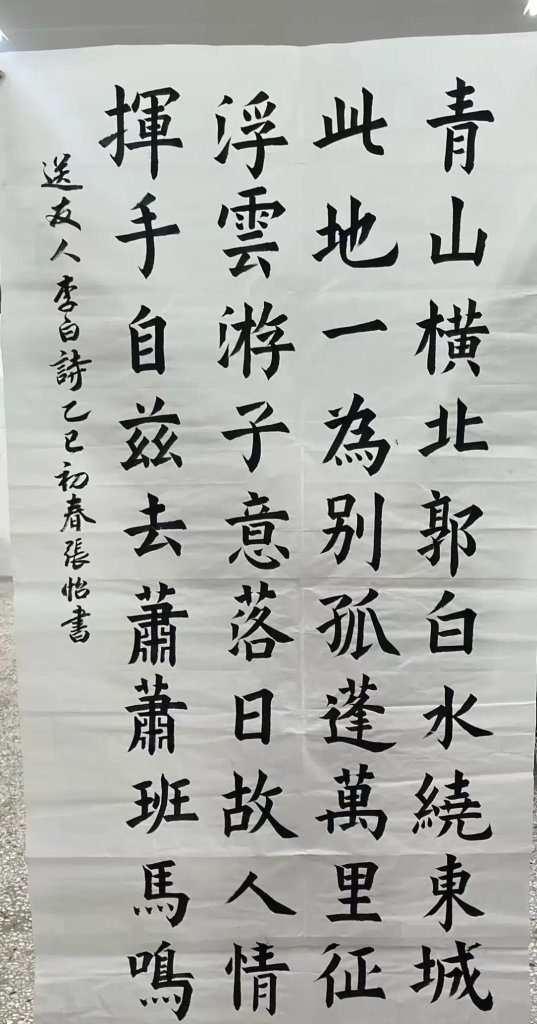 青山橫北郭白水繞東城
此地一為别孤蓬萬里征
浮雲游子意落日故人情
揮手自兹去蕭蕭班馬鳴
送友人李白詩乙巳初春張怡書